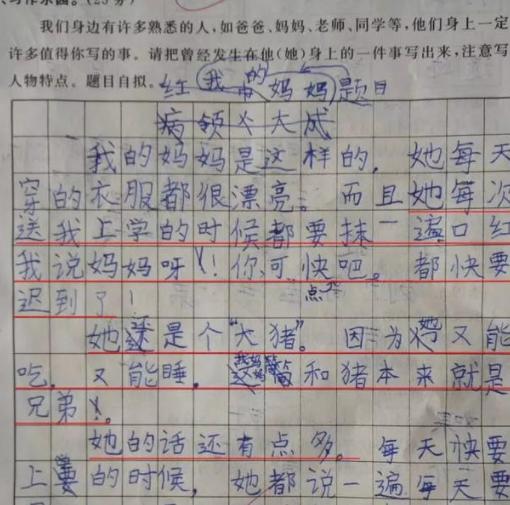 写作乐园。(25分)
我们身边有许多熟悉的人,如爸爸、妈妈、老师、同学等,他们身上一定
许多值得你写的事。请把曾经发生在他(她)身上的一件事写出来,注意写
人物特点。题目自拟。
红我的妈妈题目
我的妈妈是这样的,她每天
穿的衣服都很漂亮。而且她每次
送我上学的时候都要抹一遍口红
我说妈妈呀!你可快点吧。都快要
迟到了!
她还是个“大猪”。因为她又能
吃,又能睡。和猪本来就是
兄弟。
她的话还有点多。每天快要
上的时候,她都说一遍每天要